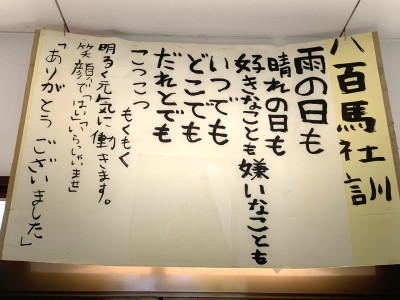 八百馬社訓
雨の日も
晴れの日も
好きなことも嫌いなことも
いつでも
どこでも
だれとでも
こつこつ
もくもく
明るく元気に働きます。
笑顔で「はい」「いらっしゃいませ」
「ありがとうございました」